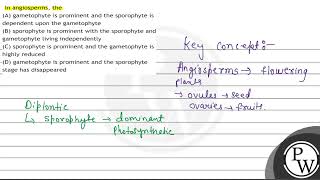 In angiosperms, the
(A) gametophyte is prominent and the sporophyte is
dependent upon the gametophyte
(B) sporophyte is prominent with the sporophyte and
gametophyte living independently
(C) sporophyte is prominent and the gametophyte is
highly reduced
(D) gametophyte is prominent and the sporophyte
stage has disappeared
Diplontic
↳ sporophyte → dominant
photosynthetic
Key concept:-
Angiosperms → flowering
plants
→ ovules → seed
ovaries → fruits.
PW